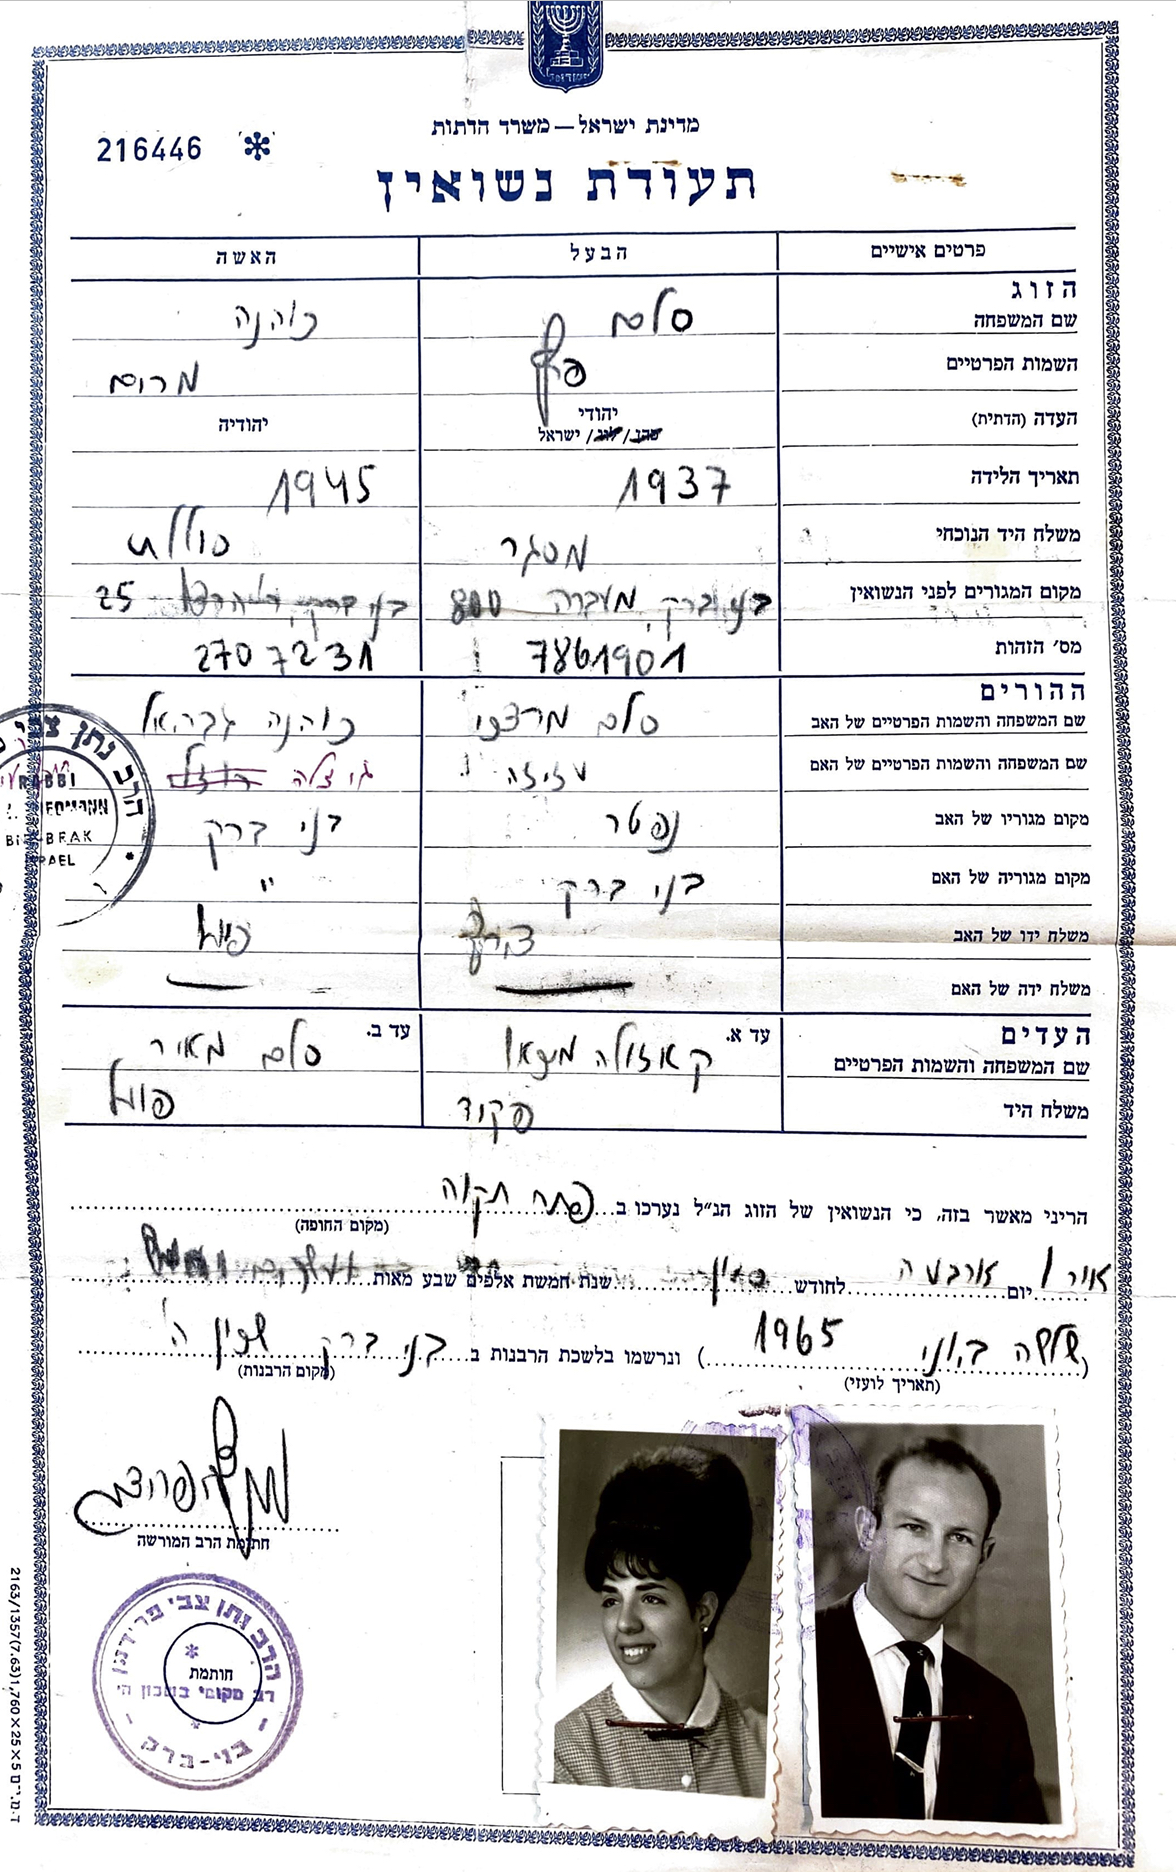 מדינת ישראל — משרד הדתות
216446 *
תעודת נשואין
פרטים אישיים הבעל האשה
הזוג
שם המשפחה סלם כוהנה
השמות הפרטיים פרץ מרום
העדה (הדתית) יהודי יהודיה
כהן / לוי / ישראל
תאריך הלידה 1937 1945
משלח היד הנוכחי מסגר
מקום המגורים לפני הנשואין בני ברק, מעברה 800 בני ברק, 25
מס׳ הזהות 7861901 2707231
ההורים
שם המשפחה והשמות הפרטיים של האב סלם מרצכי כוהנה גבריאל
שם המשפחה והשמות הפרטיים של האם עזיזה
מקום מגוריו של האב נפטר בני ברק
מקום מגוריה של האם בני ברק "
משלח ידו של האב פועל
משלח ידה של האם
העדים עד א. עד ב.
שם המשפחה והשמות הפרטיים קאזולה סלם מאיר
משלח היד פקיד פועל
הריני מאשר בזה, כי הנשואין של הזוג הנ״ל נערכו ב פתח תקוה
(מקום החופה)
אור ל יום ארבעה לחודש סיון שנת חמשת אלפים שבע מאות
(שלשה ביוני 1965) ונרשמו בלשכת הרבנות ב בני ברק שכון ה'
(תאריך לועזי) (מקום הרבנות)
חתימת הרב המורשה
הרב נתן צבי
RABBI
BRAK
הרב נתן צבי פרידמן
חותמת
רב מקומי בשכון ה׳
בני-ברק